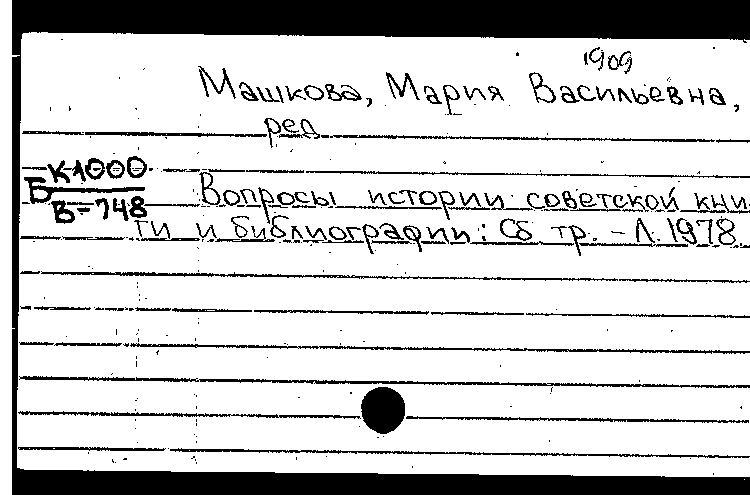 1909
Машкова, Мария Васильевна,
ред
К1000
Б
В-748
Вопросы истории советской кни-
ги и библиографии: Сб. тр. - Л. 1978